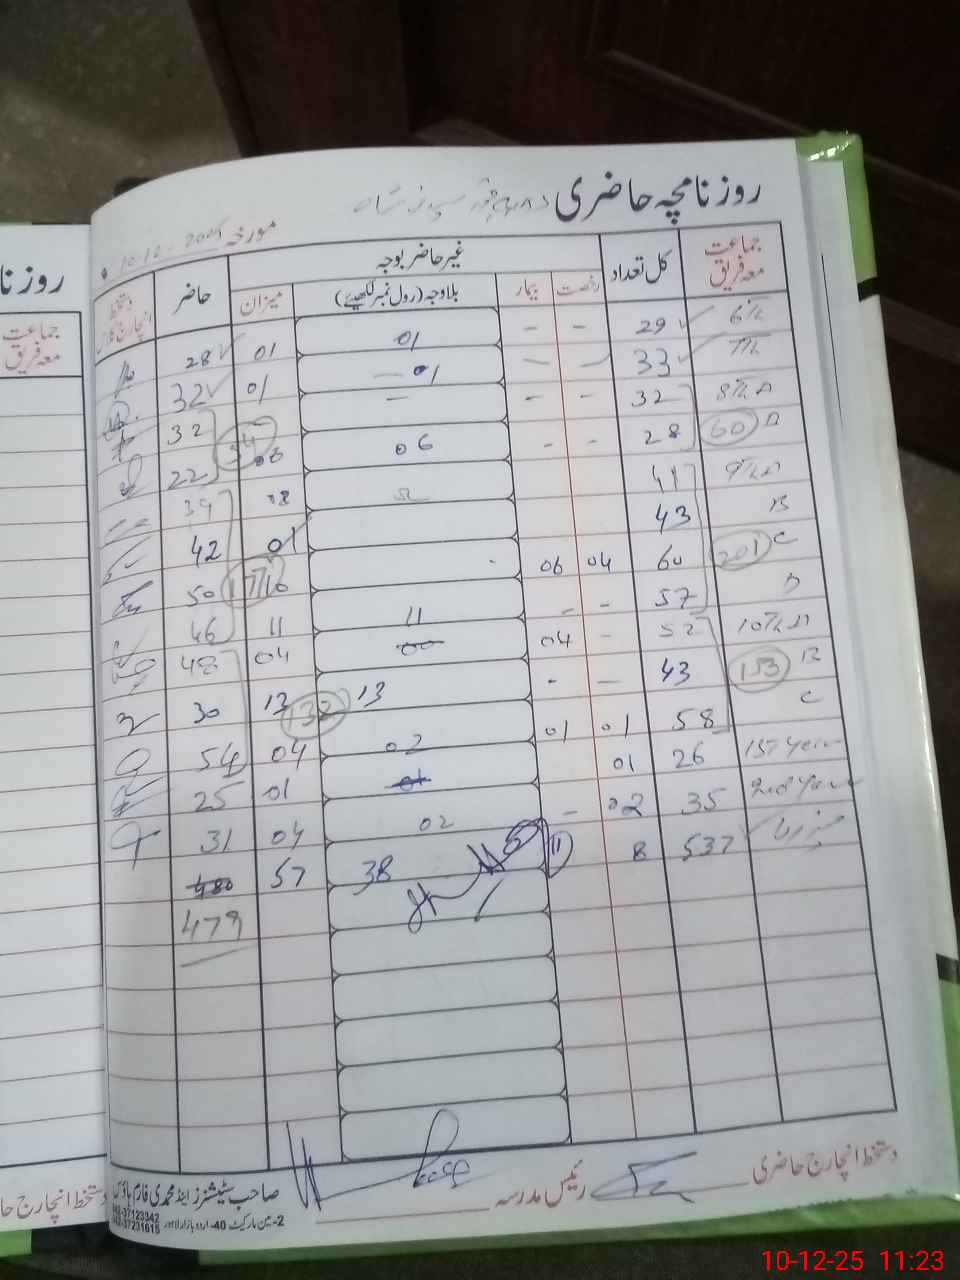 روزنامچہ حاضری
مورخہ 10-12-2025
جماعت معہ فریق کل تعداد غیر حاضر بوجہ حاضر دستخط انچارج کلاس
رخصت بیمار بلاوجہ (رول نمبر لکھیے) میزان
6th 29 - - 01 01 28
7th 33 - - 01 01 32
8th A 32 - - - 32
B 60 28 - - 06 06 22 54
9th A 41 02 39
B 43 01 42
C 201 60 04 06 10 50 177
D 57 - - 11 11 46
10th A 52 - 04 00 04 48
B 153 43 - - 13 13 30 132
C 58 01 01 02 04 54
1st year 26 01 01 01 25
2nd year 35 02 - 02 04 31
میزان 537 8 11 38 57 480
479
دستخط انچارج حاضری
رئیس مدرسہ
صاحب سٹیشنرز اینڈ محمدی فارم ہاؤس
2-مین مارکیٹ 40-اردو بازار لاہور
042-37123342
042-37231615
روزنا
جماعت معہ فریق
دستخط انچارج حا
10-12-25 11:23